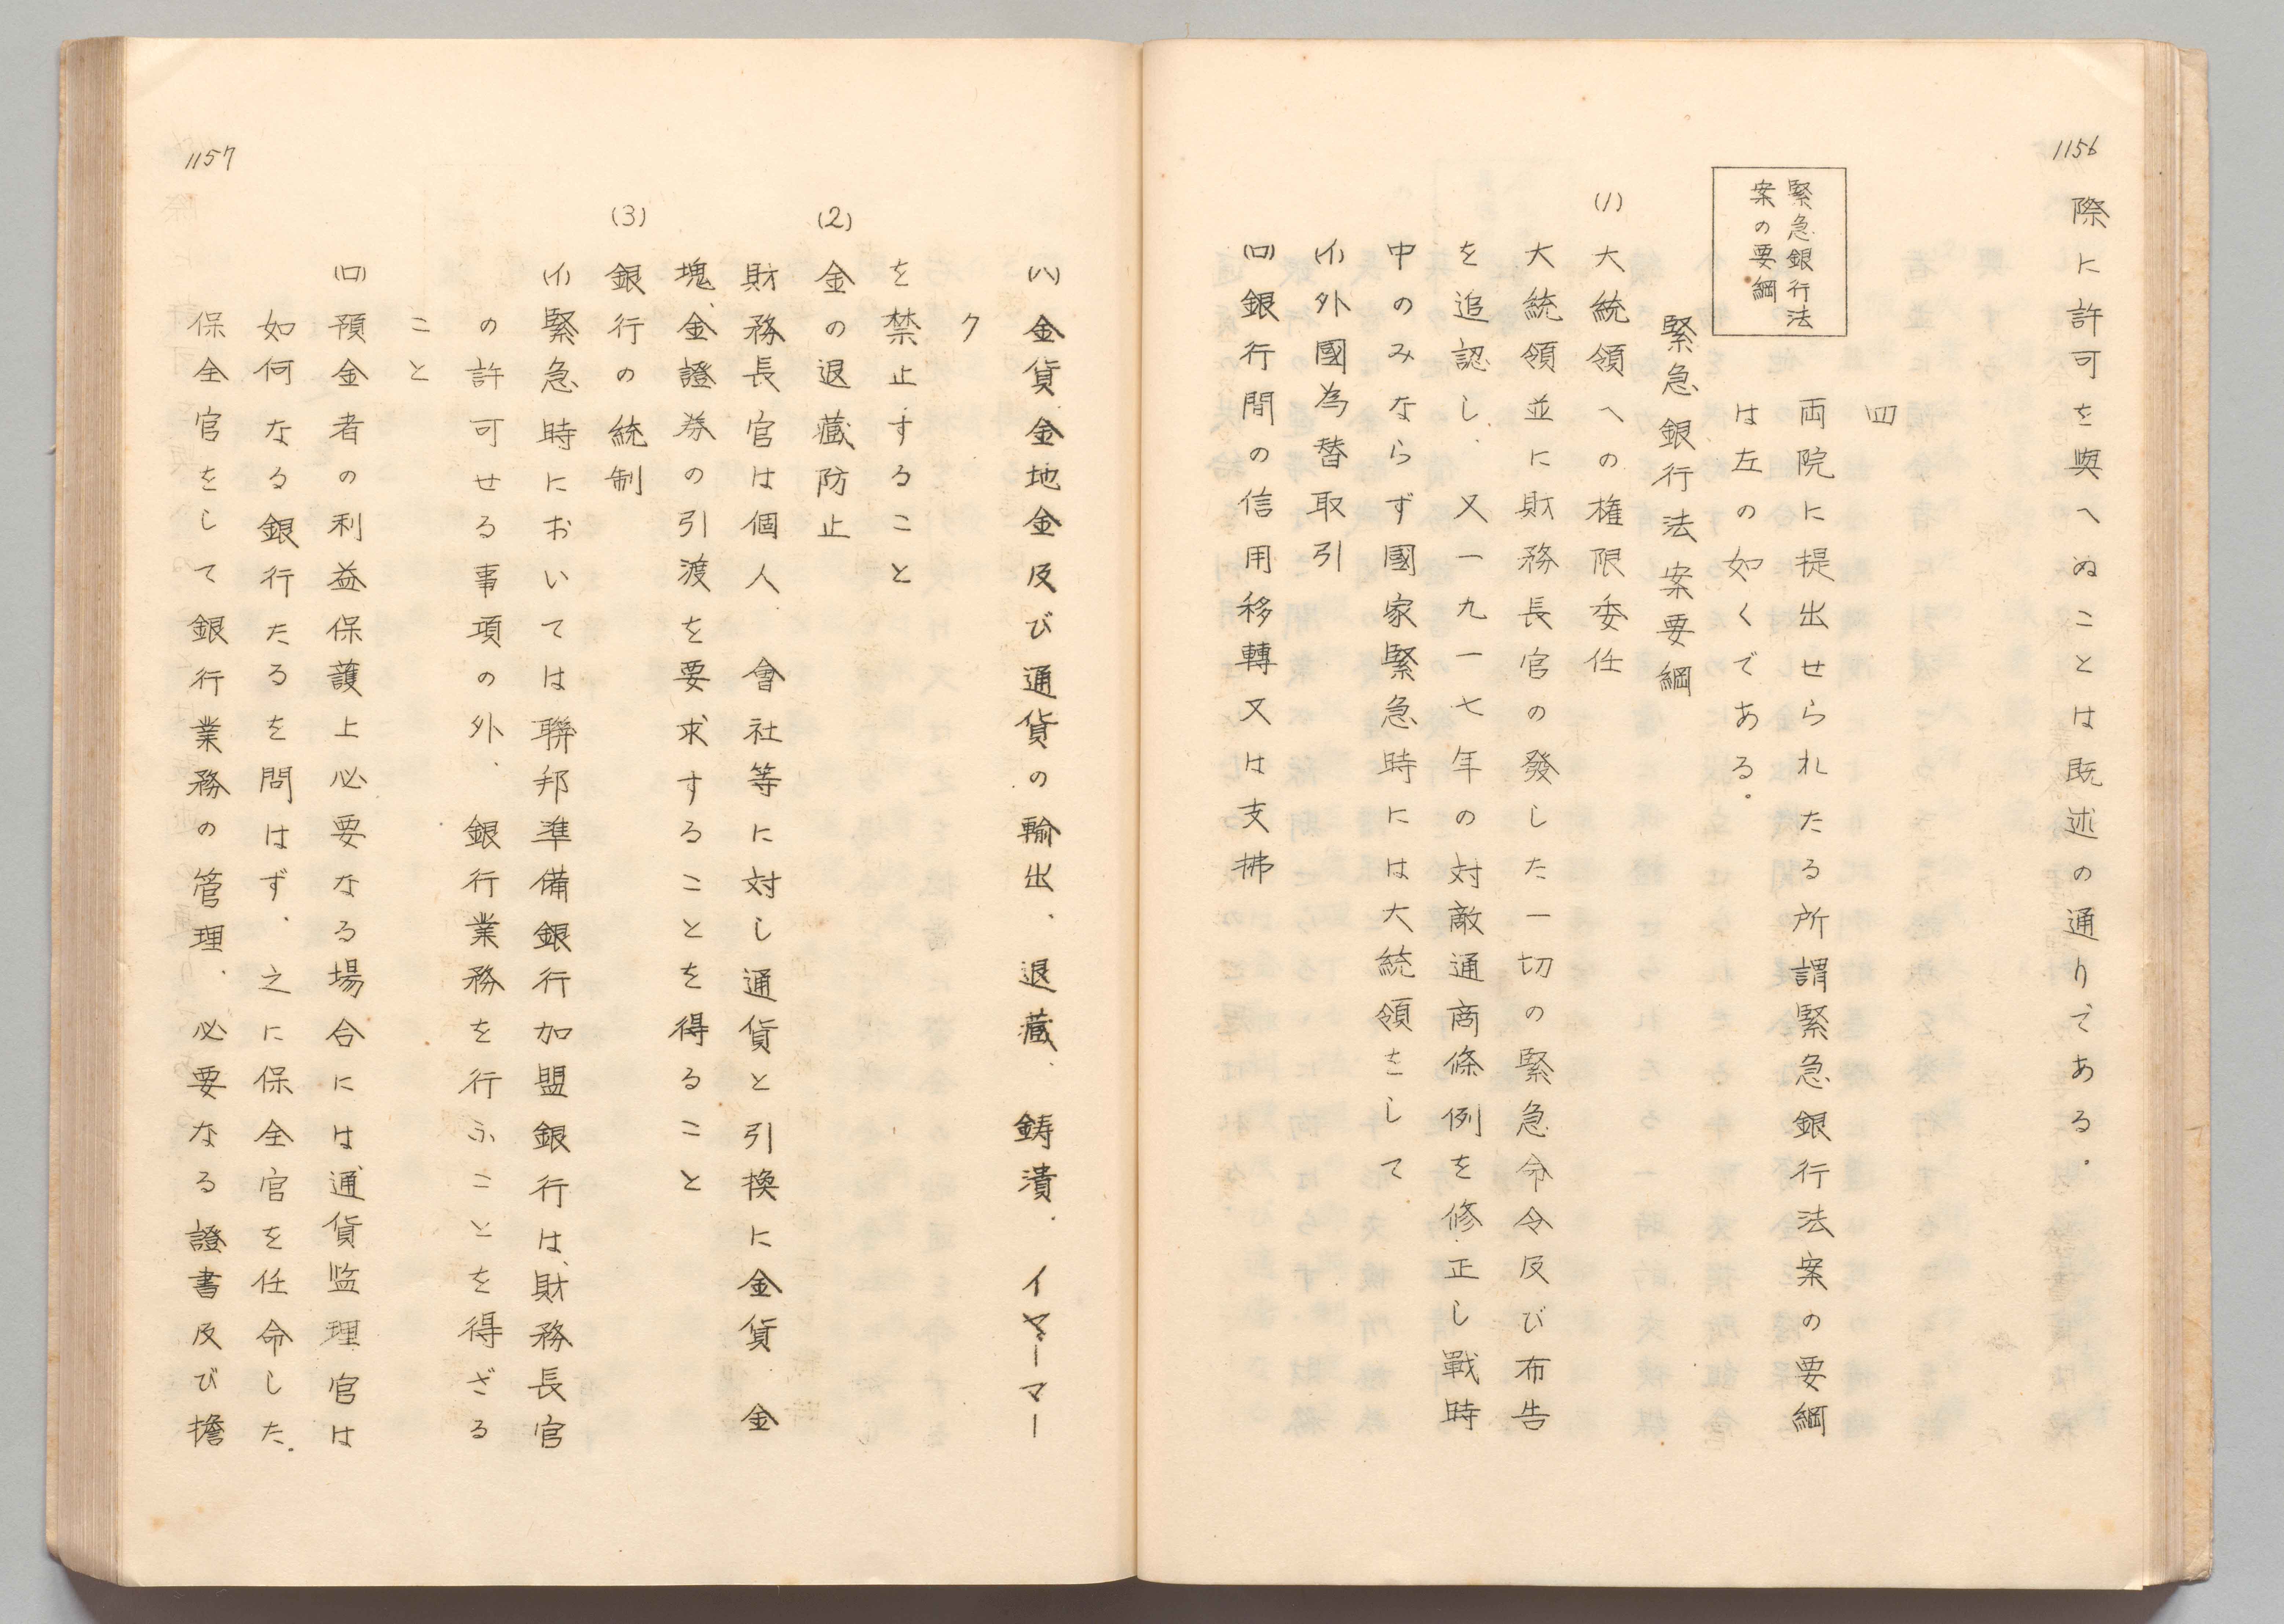 1156
際に許可を與へぬことは既述の通りである.
四
緊急銀行法
案の要綱
両院に提出せられたる所謂緊急銀行法案の要綱
は左の如くである.
緊急銀行法案要綱
(1)
大統領への権限委任
大統領並に財務長官の發した一切の緊急命令及び布告
を追認し.又一九一七年の対敵通商條例を修正し戰時
中のみならず國家緊急時には大統領をして
(イ)外國為替取引
(ロ)銀行間の信用移轉又は支拂
1157
(ハ)金貨金地金及び通貨の輸出、退藏、鋳潰.イヤーマー
ク
を禁止すること
(2)
金の退藏防止
財務長官は個人、會社等に対し通貨と引換に金貨、金
塊、金證券の引渡を要求することを得ること
(3)
銀行の統制
(イ)緊急時においては聯邦準備銀行加盟銀行は、財務長官
の許可せる事項の外.銀行業務を行ふことを得ざる
こと
(ロ)預金者の利益保護上必要なる場合には通貨監理官は
如何なる銀行たるを問はず.之に保全官を任命した.
保全官をして銀行業務の管理.必要なる證書及び擔